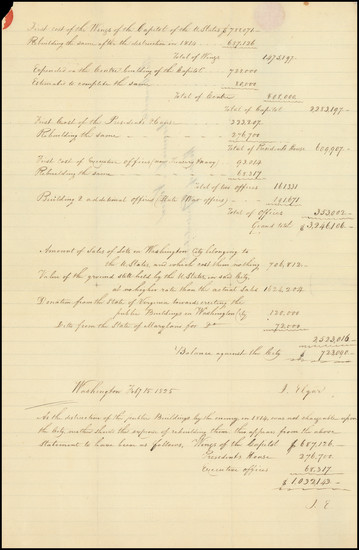 First cost of the Wings of the Capitol of the U. States $
Rebuilding the same after the destruction in 1814 687,126
Total of Wings
Expended on the Centre building of the Capitol
Estimated to complete the same
Total of Centre
Total of Capitol
First Cost of the President's House
Rebuilding the same 276,700
Total of President's House
First cost of Executive offices 93,014
Rebuilding the same 68,317
Total of two offices 161,331
Building 2 additional offices (State & War offices)
Total of Offices 353,002 -
Grand total $3,246,106 -
Amount of Sales of Lots in Washington City belonging to
the U. States and which cost them nothing
Value of the ground still held by the U. States in said City,
at no higher rate than the actual Sales
Donation from the State of Virginia towards erecting the
public Buildings in Washington City 120,000
Ditto from the State of Maryland for Do 72,000
2,523,016 -
Balance against the City $ 723,090 -
Washington Feby 15. 1825 J. Elgar
As the destruction of the public Buildings by the enemy in 1814, was not chargeable upon
the City neither should the expense of rebuilding them, this appears from the above
Statement to have been as follows, Wings of the Capitol $687,126 -
President's House 276,700
Executive offices 68,317
$ 1,032,143 -
J. E